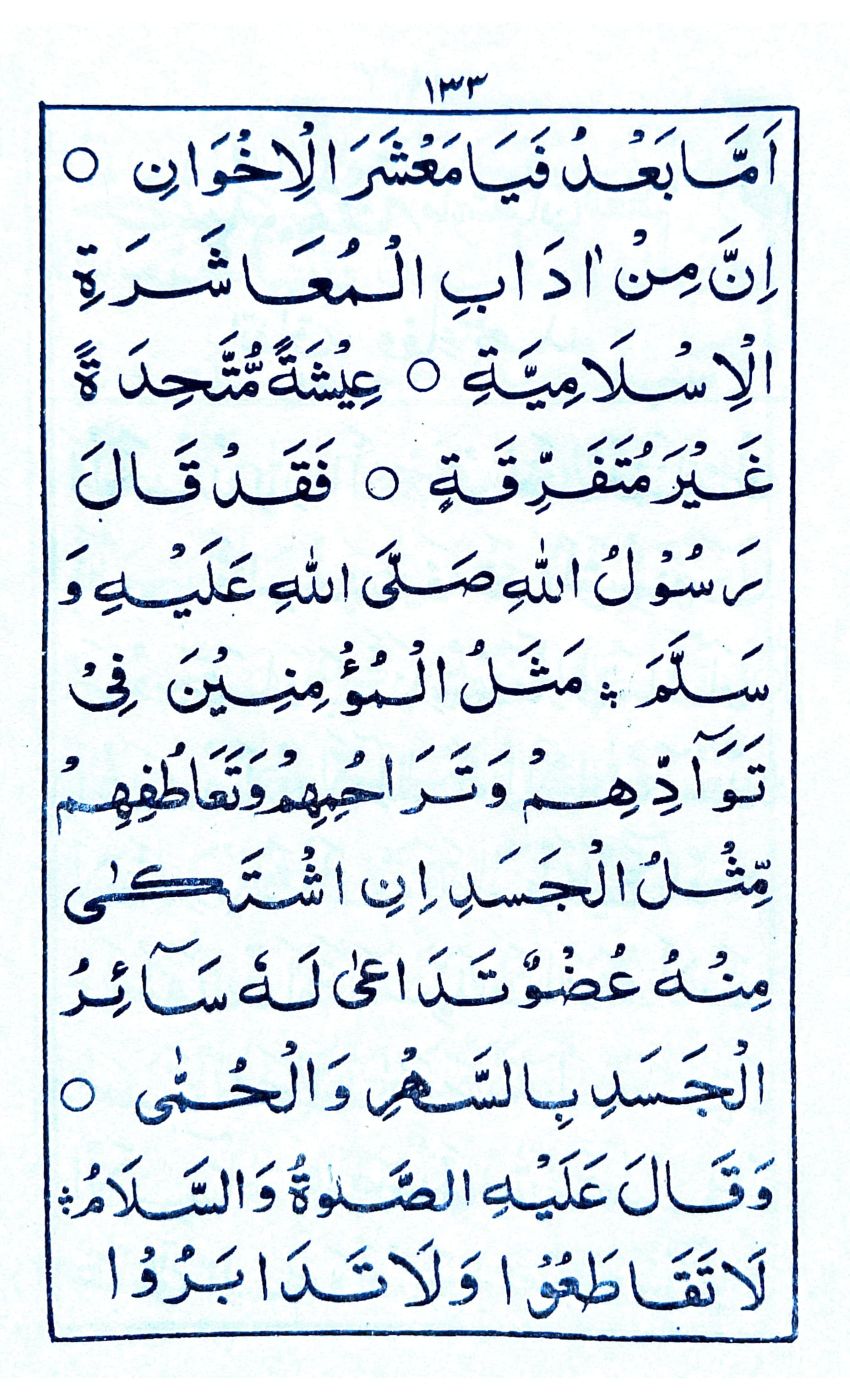 ١٣٣
اَمَّا بَعْدُ فَيَا مَعْشَرَ الْاِخْوَانِ ○
اِنَّ مِنْ اٰدَابِ الْمُعَاشَرَةِ
الْاِسْلَامِيَّةِ ○ عِيْشَةً مُّتَّحِدَةً
غَيْرَ مُتَفَرِّقَةٍ ○ فَقَدْ قَالَ
رَسُوْلُ اللّٰهِ صَلَّى اللّٰهِ عَلَيْهِ وَ
سَلَّمَ ؞ مَثَلُ الْمُؤْمِنِيْنَ فِىْ
تَوَآدِّهِمْ وَتَرَاحُمِهِمْ وَتَعَاطُفِهِمْ
مِّثْلُ الْجَسَدِ اِنِ اشْتَكٰى
مِنْهُ عُضْوٌ تَدَاعٰى لَهٗ سَآئِرُ
الْجَسَدِ بِالسَّهْرِ وَالْحُمّٰى ○
وَقَالَ عَلَيْهِ الصَّلٰوةُ وَالسَّلَامُ ؞
لَا تَقَاطَعُوْا وَلَا تَدَابَرُوْا